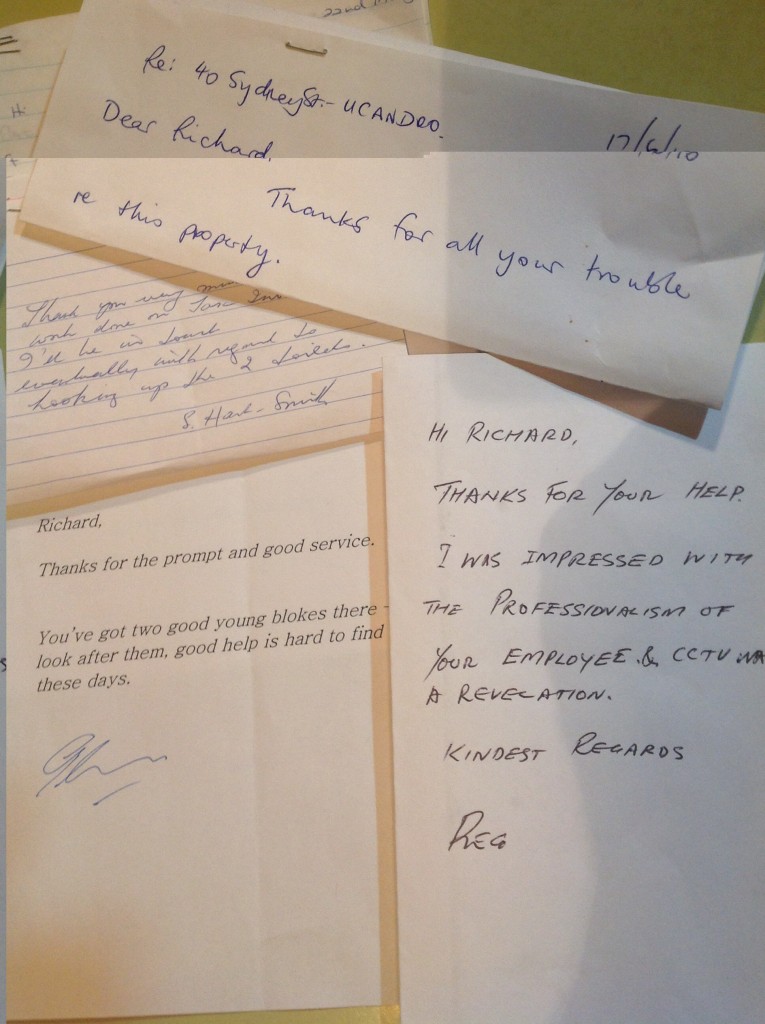 22nd
Hi
Re: 40 Sydney St. - UCANDOO.
17/6/10
Dear Richard,
Thanks for all your trouble
re this property.
Thank you very
work done on
I'll be in touch
eventually with regard to
hooking up the 2 toilets.
S. Hart-Smith
Richard,
Thanks for the prompt and good service.
You've got two good young blokes there -
look after them, good help is hard to find
these days.
HI RICHARD,
THANKS FOR YOUR HELP.
I WAS IMPRESSED WITH
THE PROFESSIONALISM OF
YOUR EMPLOYEE & CCTV WA
A REVELATION.
KINDEST REGARDS
REG